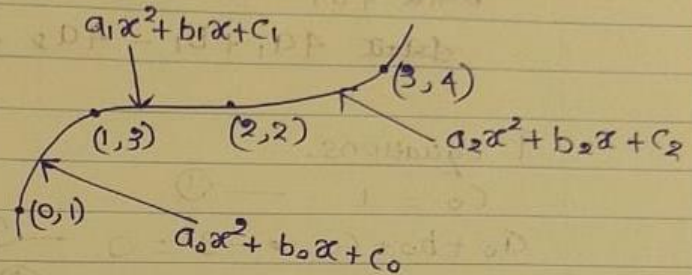 a₁x² + b₁x + c₁
(3,4)
(1,3)
(2,2)
a₂x² + b₂x + c₂
(0,1)
a₀x² + b₀x + c₀